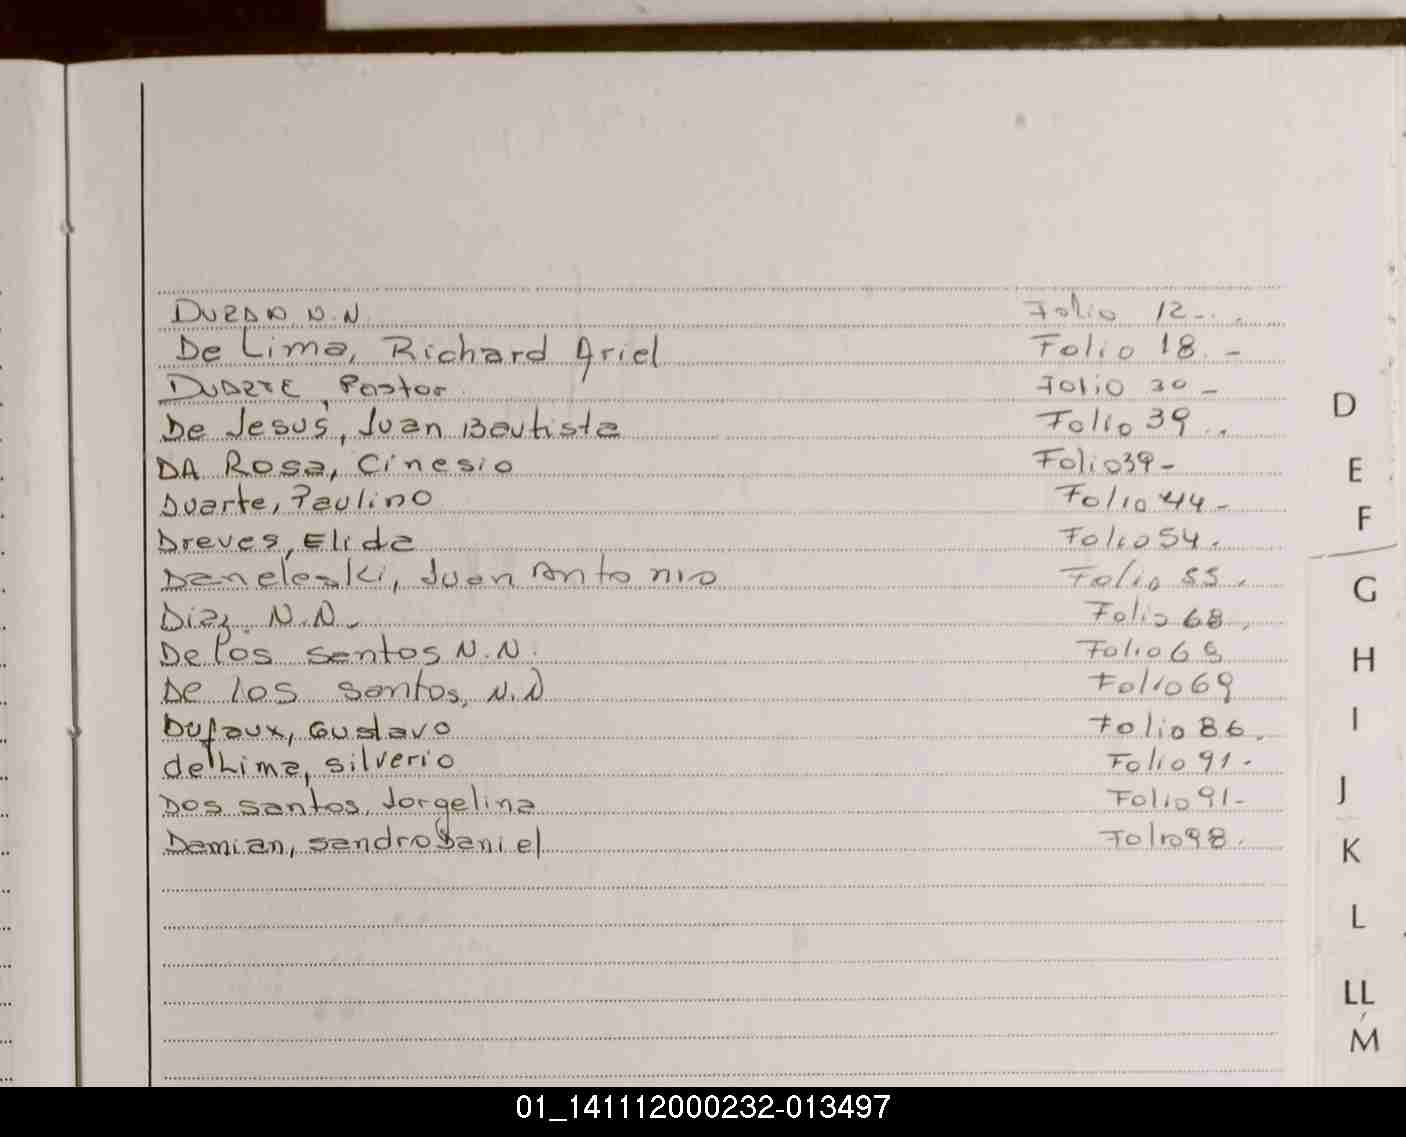 Duran N.N Folio 12-.
De Lima, Richard Ariel Folio 18.-
Duarte, Pastor Folio 30-
De Jesus, Juan Bautista Folio 39.
DA Rosa, Cinesio Folio 39-
Duarte, Paulino Folio 44-
Dreves, Elida Folio 54.
Daneleski, Juan Antonio Folio 55.
Diaz. N.N. Folio 68.
De los santos N.N. Folio 69
De los santos, N.N Folio 69
Dufaux, Gustavo Folio 86.
de Lima, silverio Folio 91.
Dos santos, Jorgelina Folio 91-
Damian, sandro Daniel Folio 98.
D
E
F
G
H
I
J
K
L
LL
M
01_141112000232-013497